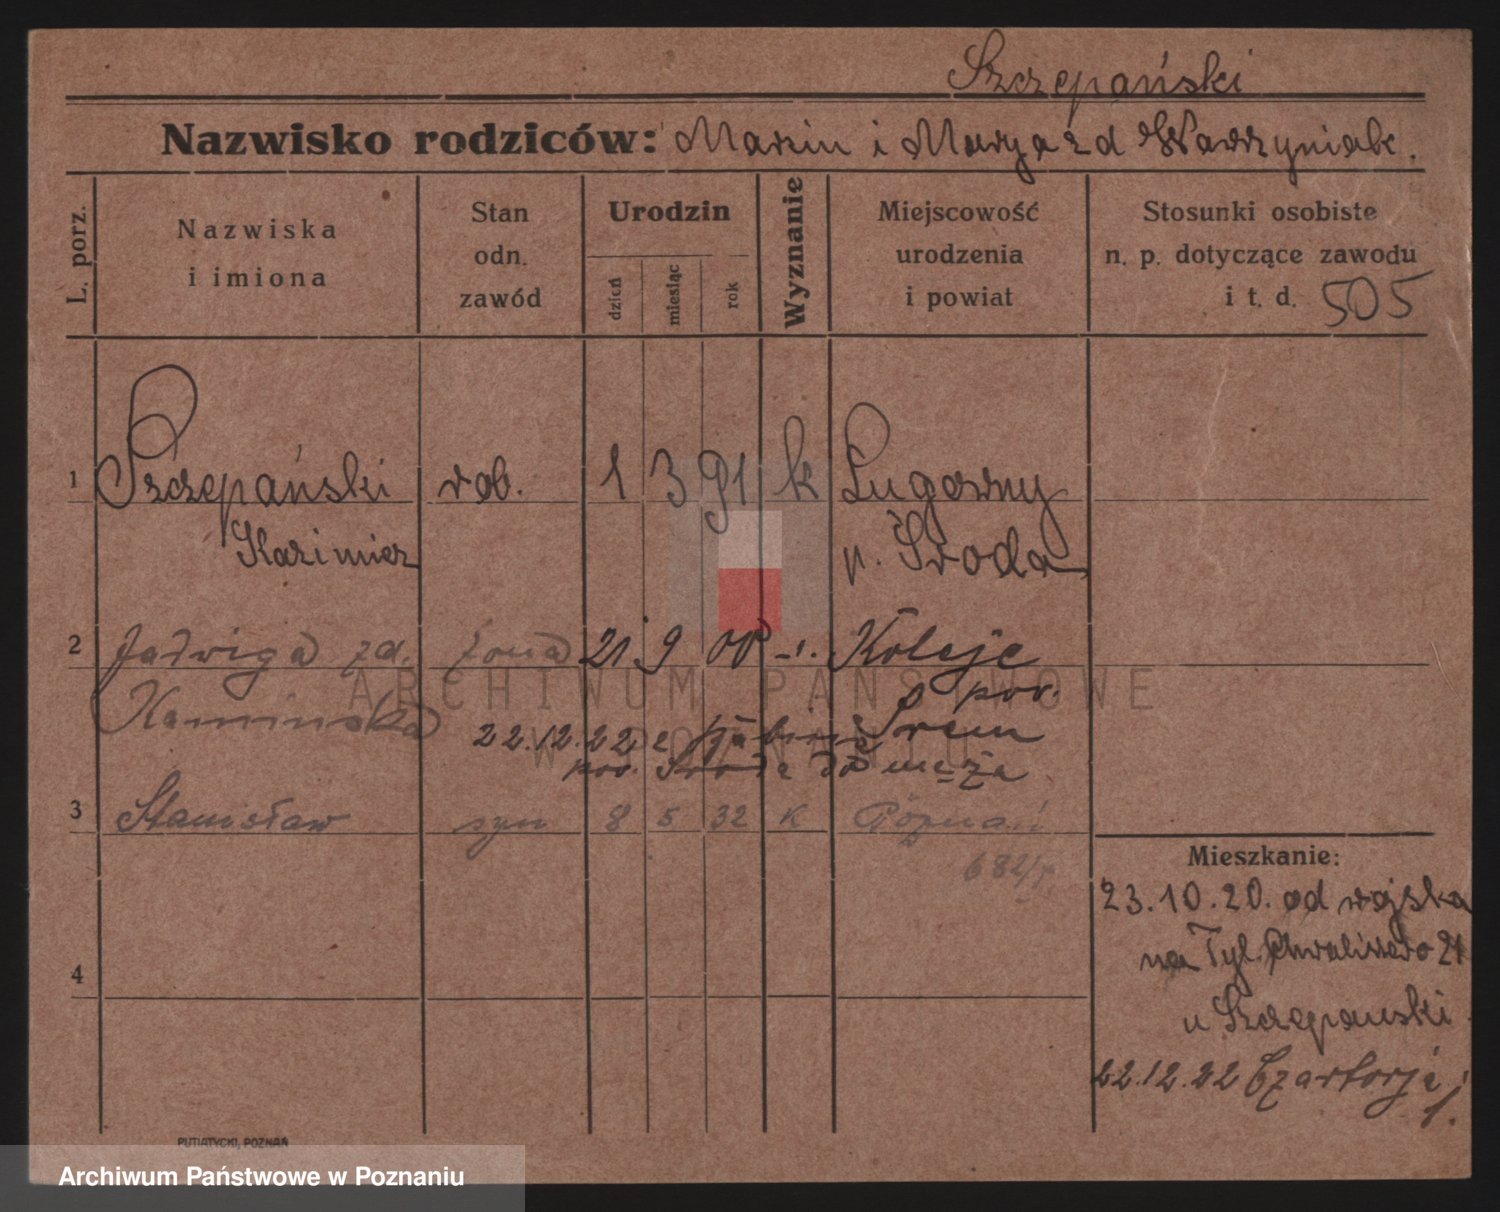 Szczepański
Nazwisko rodziców: Marcin i Marya zd Wawrzyniak.
L. porz.
Nazwiska
i imiona
Stan
odn.
zawód
Urodzin
dzień
miesiąc
rok
Wyznanie
Miejscowość
urodzenia
i powiat
Stosunki osobiste
n. p. dotyczące zawodu
i t. d. 505
1 Szczepański rob. 1 3 91 k
Kazimierz p. Środa
2 Jadwiga zd. żona 21 9 00 -"- Koleje
Kamińska pow.
Śrem
22.12.22 z
pow. Środa do męża
3 Stanisław syn 8 5 32 k Poznań
4
Mieszkanie:
23.10.20. od wojska
na Tyl. Chwaliszewo 21
u Szczepański
22.12.22 Czartorja
1.
PUTIATYCKI, POZNAŃ
ARCHIWUM PAŃSTWOWE
W POZNANIU
Archiwum Państwowe w Poznaniu